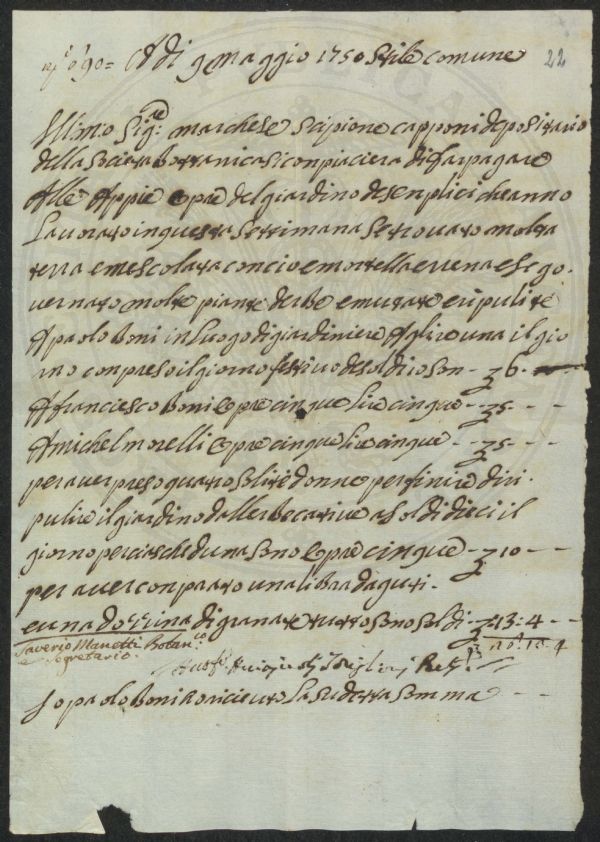 A di 9 Maggio 1750 Stile comune 22
Illmo Sigre marchese scipione capponi depositario
della Societa bottanica si conpiacera di far pagare
Alle Appie Opre del giardino de senplici che anno
Lavorato in questa settimana se trovato molta
terra e mescolata concio e mortella e rena e se go-
vernato molte piante derbe e mutate e ripulite
A paolo boni in luogo di giardiniere A lire una il gio
rno conpreso il giorno festivo de soldi 10 son - 6 -
A francesco boni Opre cinque lire cinque - 5 - -
A michel morelli Opre cinque lire cinque - 5 - -
per aver preso quatro solite donne per finire di ri-
pulire il giardino dallerbe cative a soldi dieci il
giorno per ciascheduna sono Opre cinque - 10 - -
per aver conprato una libra daguti -
e una dozzina di granate tutto sono soldi - 13 : 4 -
Saverio Manetti Botanco
e Segretario.
Io paolo boni o riceuto La sudetta somma - -